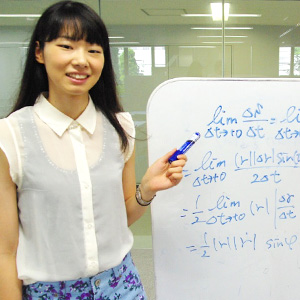 lim Δt→0 ΔS⃗/Δt = lim Δt→
= lim Δt→0 (|r||Δr| sin
 /2Δt
= 1/2 lim Δt→0 |r| |Δr/Δt
= 1/2 |r||ṙ| sin φ